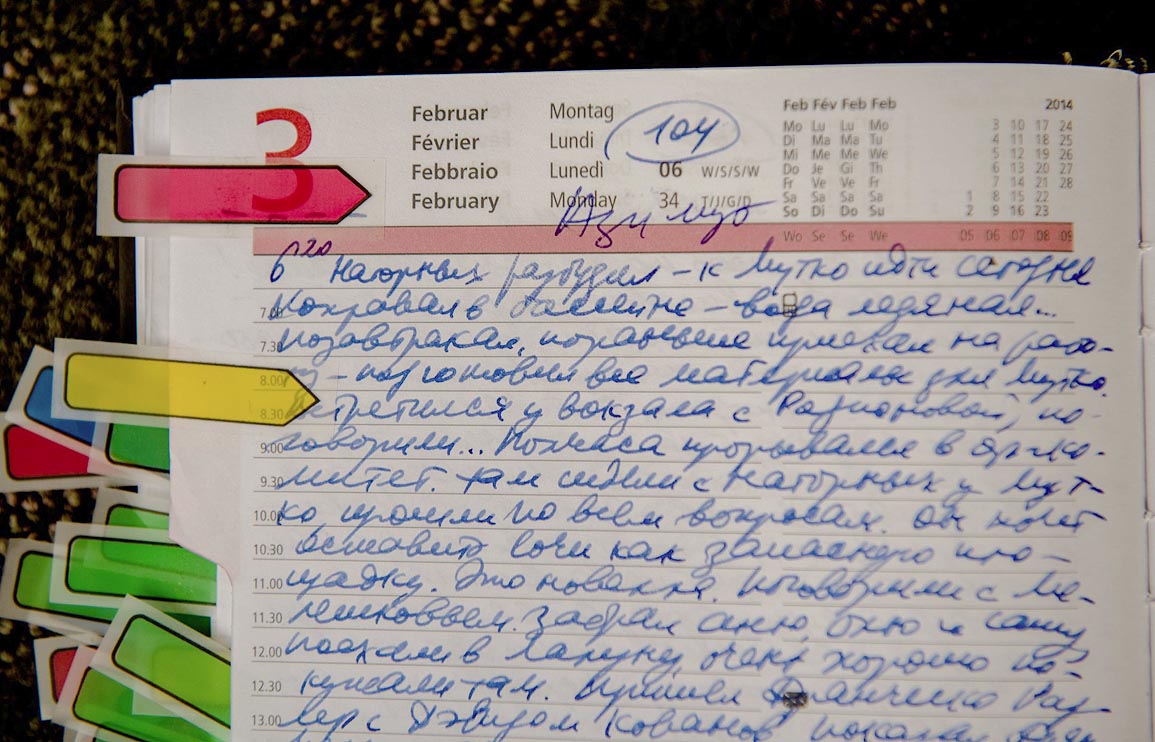 3
Februar Montag
Février Lundi
Febbraio Lunedì 06 W/S/S/W
February Monday 34 T/J/G/D
104
Feb Fév Feb Feb 2014
Mo Lu Lu Mo 3 10 17 24
Di Ma Ma Tu 4 11 18 25
Mi Me Me We 5 12 19 26
Do Je Gi Th 6 13 20 27
Fr Ve Ve Fr 7 14 21 28
Sa Sa Sa Sa 1 8 15 22
So Di Do Su 2 9 16 23
Wo Se Se We 05 06 07 08 09
Азимут
6 20 Нагорных разбудил – к Мутко идти сегодня
7.00 в бассейне – вода ледяная...
7.30 позавтракал, пораньше приехал на рабо-
8.00 ту – подготовил все материалы для Мутко.
8.30 встретился у вокзала с Родионовой, по-
9.00 говорили... Полчаса прорывался в оргко-
9.30 митет. там сидели с Нагорных у Мут-
10.00 ко прошли по всем вопросам. он хочет
10.30 оставить Сочи как запасную пло-
11.00 щадку. Это новелла. поговорили с Ме-
11.30 лешковым. Забрал и Сашу
12.00 поехали в Лагуну очень хорошо по-
12.30 кушали там. Пришел
13.00 с Дэвидом Кованов показал